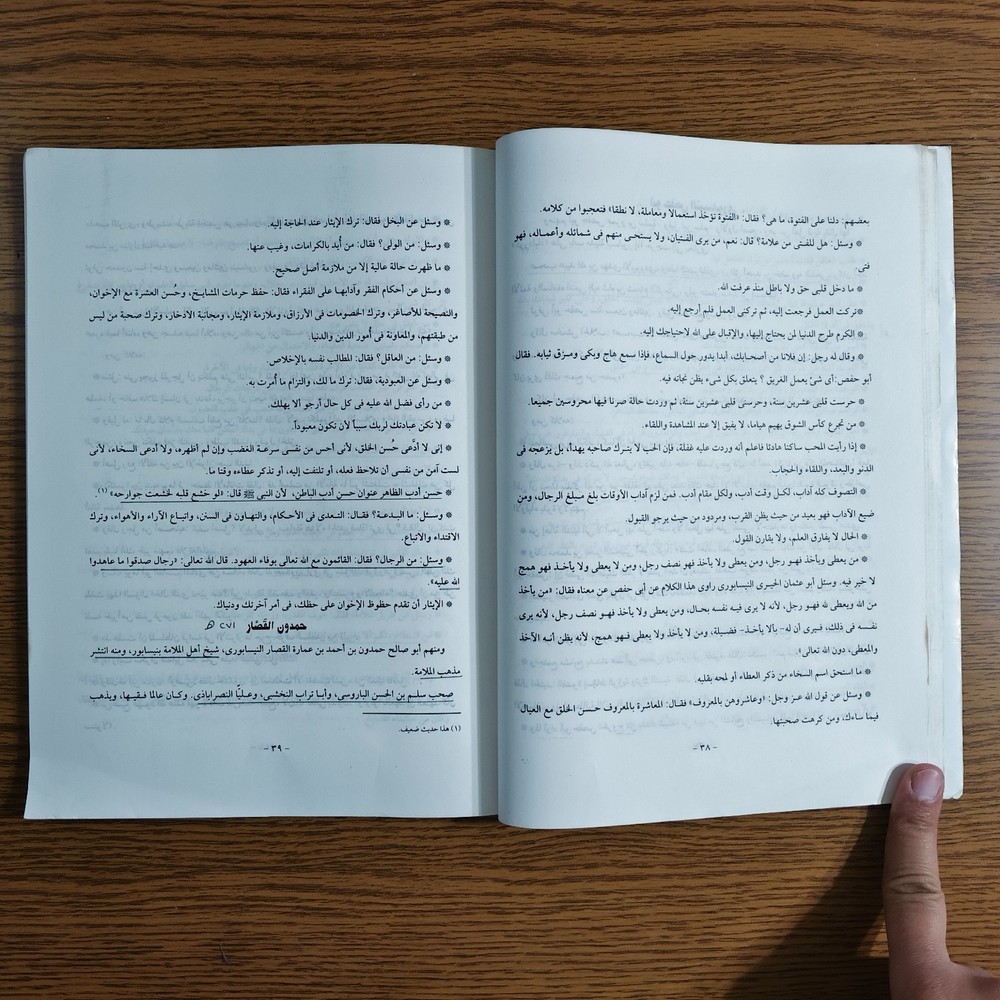 بعضهم: دلنا على الفتوة، ما هى؟ فقال: «الفتوة تؤخذ استعمالا ومعاملة، لا نطقا» فتعجبوا من كلامه.
* وسئل: هل للفتى من علامة؟ قال: نعم، من يرى الفتيان، ولا يستحى منهم فى شمائله وأعماله، فهو
فتى.
* ما دخل قلبى حق ولا باطل منذ عرفت الله.
* تركت العمل فرجعت إليه، ثم تركنى العمل فلم أرجع إليه.
* الكرم طرح الدنيا لمن يحتاج إليها، والإقبال على الله لاحتياجك إليه.
* وقال له رجل: إن فلانا من أصحابك، أبدا يدور حول السماع، فإذا سمع هاج وبكى ومزق ثيابه. فقال
أبو حفص: أى شئ يعمل الغريق ؟ يتعلق بكل شىء يظن نجاته فيه.
* حرست قلبى عشرين سنة، وحرسنى قلبى عشرين سنة، ثم وردت حالة صرنا فيها محروسين جميعا.
* من تجرع كأس الشوق يهيم هياما، لا يفيق إلا عند المشاهدة واللقاء.
* إذا رأيت المحب ساكنا هادئا فاعلم أنه وردت عليه غفلة، فإن الحب لا يترك صاحبه يهدأ، بل يزعجه فى
الدنو والبعد، واللقاء والحجاب.
* التصوف كله آداب، لكل وقت أدب، ولكل مقام أدب. فمن لزم آداب الأوقات بلغ مبلغ الرجال، ومن
ضيع الآداب فهو بعيد من حيث يظن القرب، ومردود من حيث يرجو القبول.
* الحال لا يفارق العلم، ولا يقارن القول.
* من يعطى ويأخذ فهو رجل، ومن يعطى ولا يأخذ فهو نصف رجل، ومن لا يعطى ولا يأخذ فهو همج
لا خير فيه. وسئل أبو عثمان الحيرى النيسابورى راوى هذا الكلام عن أبى حفص عن معناه فقال: «من يأخذ
من الله ويعطى لله فهو رجل، لأنه لا يرى فيه نفسه بحال، ومن يعطى ولا يأخذ فهو نصف رجل، لأنه يرى
نفسه فى ذلك، فيرى أن له- بألا يأخذ- فضيلة، ومن لا يأخذ ولا يعطى فهو همج، لأنه يظن أنه الآخذ
والمعطى، دون الله تعالى».
* ما استحق اسم السخاء من ذكر العطاء أو لمحه بقلبه.
* وسئل عن قول الله عز وجل: «وعاشروهن بالمعروف» فقال: المعاشرة بالمعروف حسن الخلق مع العيال
فيما ساءك، ومن كرهت صحبتها.
- ٣٨ -
* وسئل عن البخل فقال: ترك الإيثار عند الحاجة إليه.
* وسئل: من الولى؟ فقال: من أُيد بالكرامات، وغيب عنها.
* ما ظهرت حالة عالية إلا من ملازمة أصل صحيح.
* وسئل عن أحكام الفقر وآدابها على الفقراء فقال: حفظ حرمات المشايخ، وحُسن العشرة مع الإخوان،
والنصيحة للأصاغر، وترك الخصومات فى الأرزاق، وملازمة الإيثار، ومجانبة الادخار، وترك صحبة من ليس
من طبقتهم، والمعاونة فى أُمور الدين والدنيا.
* وسئل: من العاقل؟ فقال: المطالب نفسه بالإخلاص.
* وسئل عن العبودية، فقال: ترك ما لك، والتزام ما أُمرت به.
* من رأى فضل الله عليه فى كل حال أرجو ألا يهلك.
* لا تكن عبادتك لربك سبباً لأن تكون معبوداً.
* إنى لا أدَّعى حُسن الخلق، لأنى أحس من نفسى سرعة الغضب وإن لم أظهره، ولا أدعى السخاء، لأنى
لست آمن من نفسى أن تلاحظ فعله، أو تلتفت إليه، أو تذكر عطاءه وقتا ما.
* حسن أدب الظاهر عنوان حسن أدب الباطن، لأن النبى ﷺ قال: «لو خشع قلبه لخشعت جوارحه» (١).
* وسئل: ما البدعة؟ فقال: التعدى فى الأحكام، والتهاون فى السنن، واتباع الآراء والأهواء، وترك
الاقتداء والاتباع.
* وسئل: من الرجال؟ فقال: القائمون مع الله تعالى بوفاء العهود. قال الله تعالى: «رجال صدقوا ما عاهدوا
الله عليه».
* الإيثار أن تقدم حظوظ الإخوان على حظك، فى أمر آخرتك ودنياك.
حمدون القَصّار ٢٧١ هـ
ومنهم أبو صالح حمدون بن أحمد بن عمارة القصار النيسابورى، شيخ أهل الملامة بنيسابور، ومنه انتشر
مذهب الملامة.
صحب سلم بن الحسن الباروسى، وأبا تراب النخشبى، وعليًّا النصراباذى. وكان عالما فقيها، ويذهب
(١) هذا حديث ضعيف.
- ٣٩ -